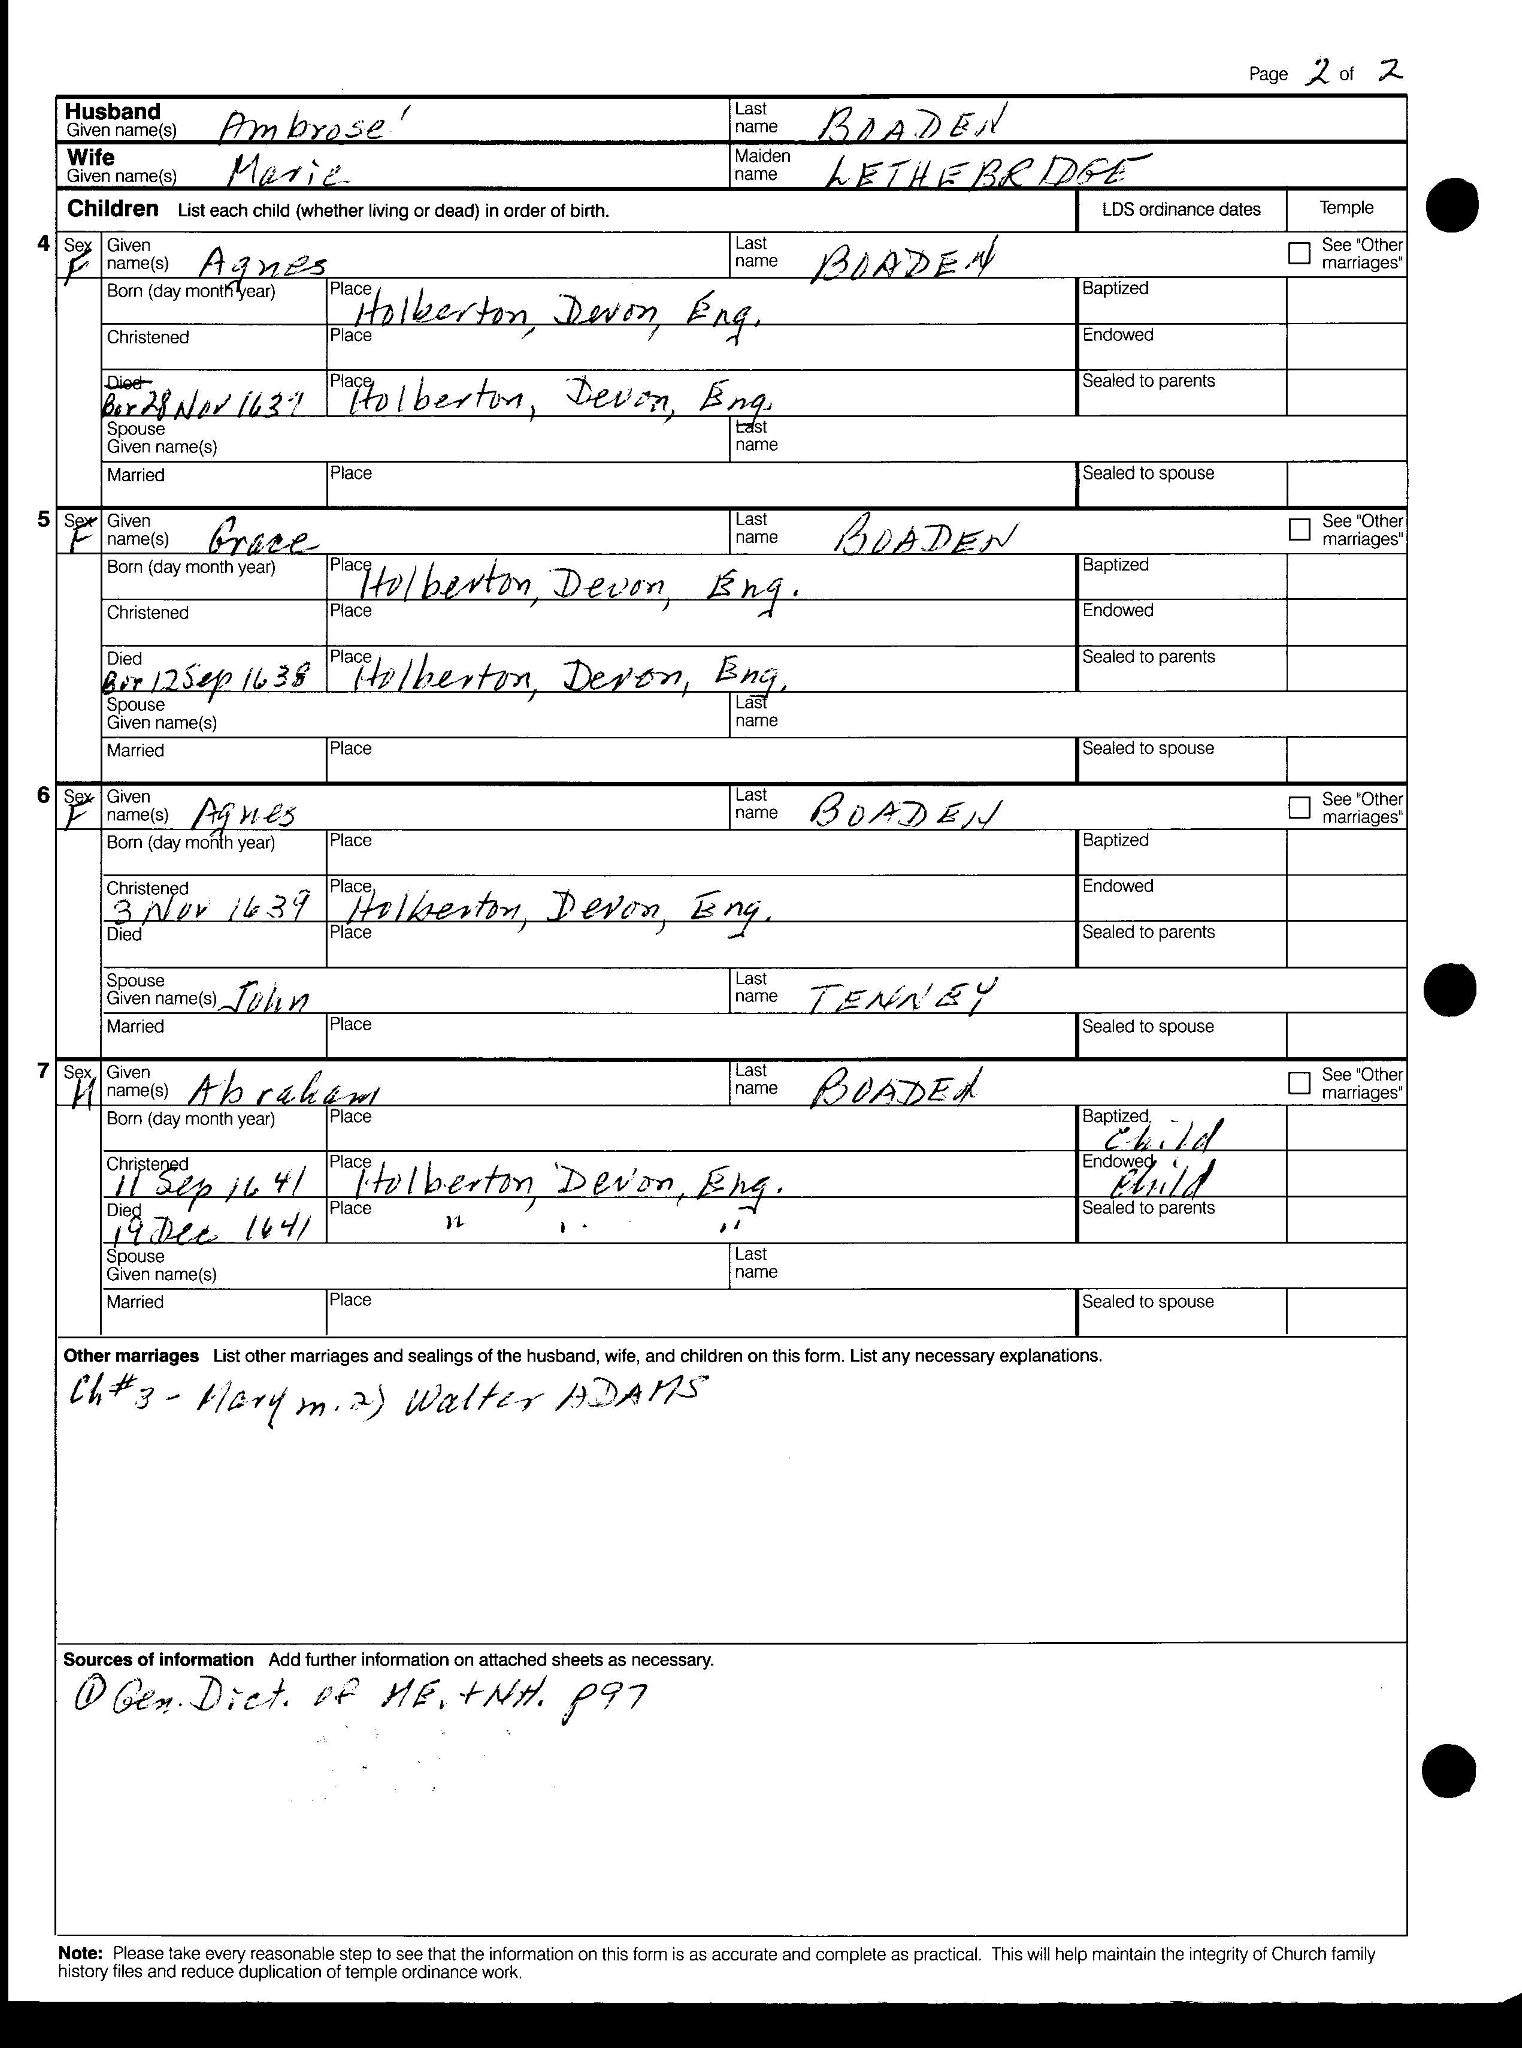 Page 2 of 2
Husband
Given name(s) Ambrose' Last name BOADEN
Wife
Given name(s) Marie Maiden name LETHEBRIDGE
Children List each child (whether living or dead) in order of birth. LDS ordinance dates Temple
4 Sex F Given name(s) Agnes Last name BOADEN See "Other marriages"
Born (day month year) Place Holberton, Devon, Eng. Baptized
Christened Place Endowed
Died Bur 28 Nov 1637 Place Holberton, Devon, Eng. Sealed to parents
Spouse Given name(s) Last name
Married Place Sealed to spouse
5 Sex F Given name(s) Grace Last name BOADEN See "Other marriages"
Born (day month year) Place Holberton, Devon, Eng. Baptized
Christened Place Endowed
Died Bur 12 Sep 1638 Place Holberton, Devon, Eng. Sealed to parents
Spouse Given name(s) Last name
Married Place Sealed to spouse
6 Sex F Given name(s) Agnes Last name BOADEN See "Other marriages"
Born (day month year) Place Baptized
Christened 3 Nov 1639 Place Holberton, Devon, Eng. Endowed
Died Place Sealed to parents
Spouse Given name(s) John Last name TENNEY
Married Place Sealed to spouse
7 Sex M Given name(s) Abraham Last name BOADEN See "Other marriages"
Born (day month year) Place Baptized Child
Christened 11 Sep 1641 Place Holberton, Devon, Eng. Endowed Child
Died 19 Dec 1641 Place " " " Sealed to parents
Spouse Given name(s) Last name
Married Place Sealed to spouse
Other marriages List other marriages and sealings of the husband, wife, and children on this form. List any necessary explanations.
Ch #3 - Mary m. 2) Walter ADAMS
Sources of information Add further information on attached sheets as necessary.
① Gen. Dict. of ME. + NH. p97
Note: Please take every reasonable step to see that the information on this form is as accurate and complete as practical. This will help maintain the integrity of Church family
history files and reduce duplication of temple ordinance work.